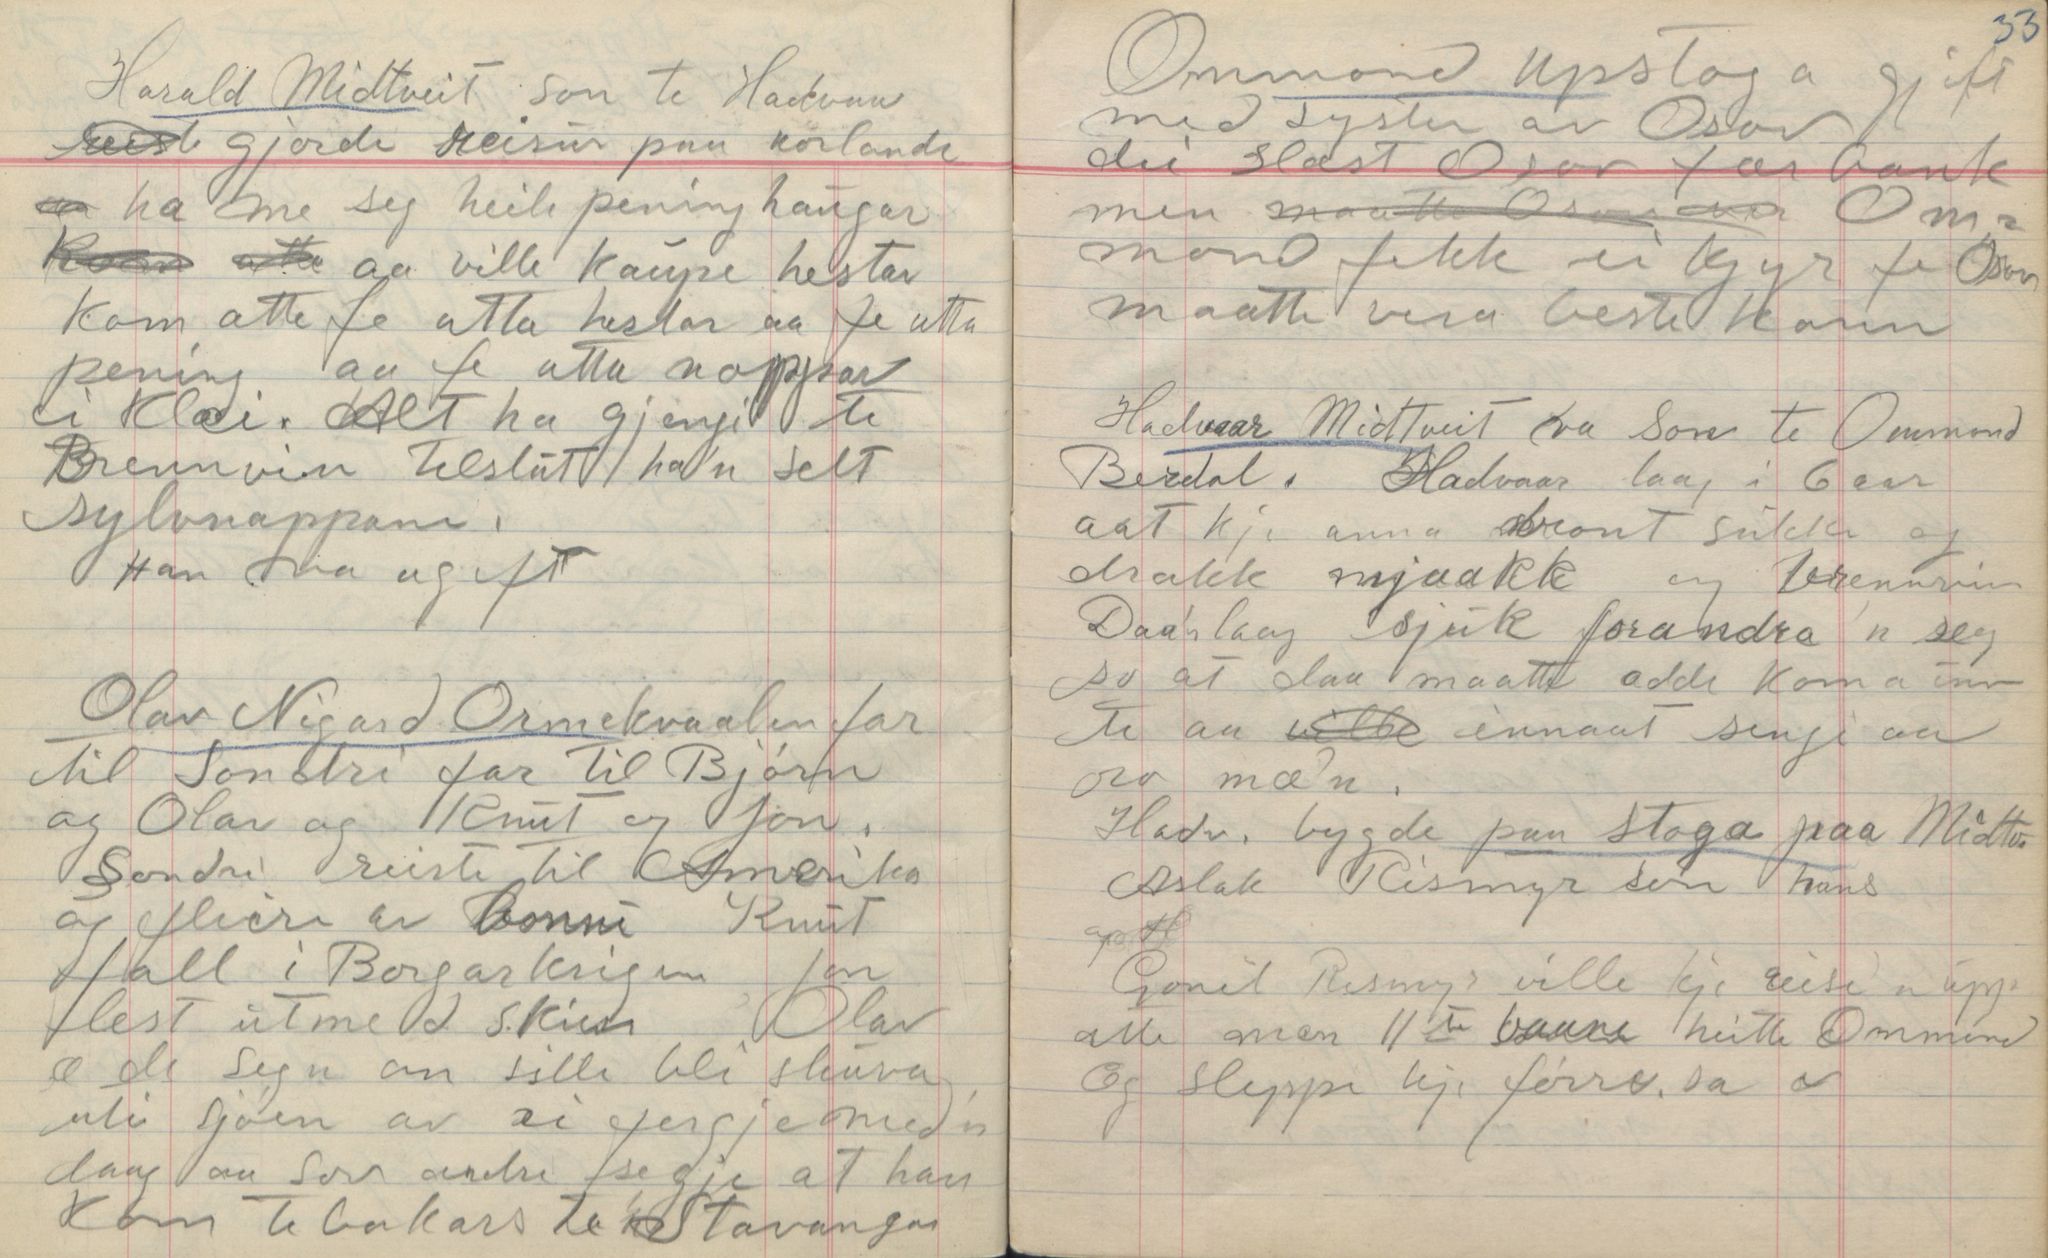 Harald Midtveit son te Hadvaar
reiste gjorde reisur paa Norlande
aa ha me seg heile pening haugar
aa ville kaupe hestar
kom atte fe atta hestar aa fe atta
pening aa fe atta noppsar
ei Klæi. Alt ha gjengi te
Brennvin telslut ha'n selt
sylvnappane.
Han va ugift
Olav Nigard Ormekvaalen far
til Sondri far til Bjórn
og Olav og Knut og Jon.
Sondri reiste til Amerika
og fleire av bonni Knut
fall i Borgarkrigen Jon
lest utmed Skien Olav
æ de segn om sille bli skuva
uti sjóen av ei fergje med'n
laag aa sov andre segje at han
kom tebakars te Stavanger
33
Ommond Upstoga gjift
med syster av Osov
dei slæst Osov fær bank
men maatte Osov Om-
mond fekk ei kjyr fe Osov
maatte vera beste kaann
Hadvaar Midtveit va son te Ommond
Berdal. Hadvaar laag i 6 aar
aat kje anna
sukke og
drakk mjaakk og brennvin
Daa'n laag sjuk forandra'n seg
so at daa maatte adde koma inn
te aa ville innaat sengi aa
ov mæ'n.
Hadv. bygde paa stoga paa Midtv.
Aslak Rismyr son hans
Gonil Rismyr ville kje reise'n upp
atte men 11te baane heitte Ommond
Og sleppe kje fórre. sa o